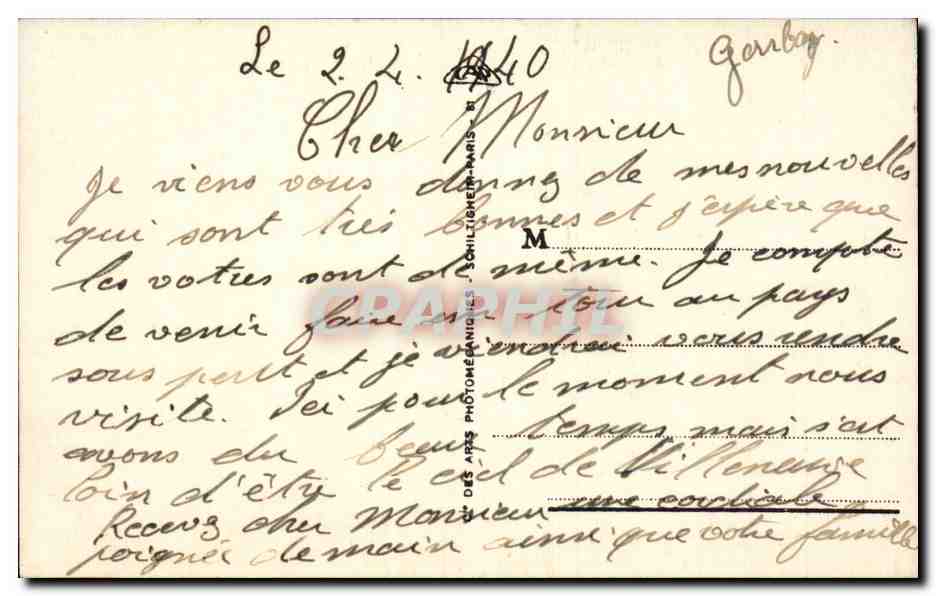 Le 2.4.1940
Cher Monsieur
Je viens vous donnez de mes nouvelles
qui sont très bonnes et j'espère que
les votres sont de même. Je compte
de venir faire un tour au pays
sous peu et je viendrai vous rendre
visite. Ici pour le moment nous
avons du beau temps mais s'est
loin d'être le ciel de Villenauxe
Recevez cher Monsieur une cordiale
poignée de main ainsi que votre famille
M
Cie DES ARTS PHOTOMÉCANIQUES - SCHILTIGHEIM-PARIS - 61
CPAPHIL